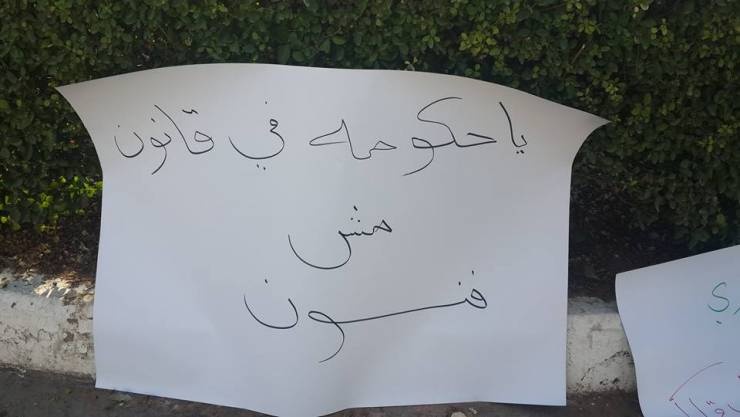 يا حكومة في قانون
مش
فنون